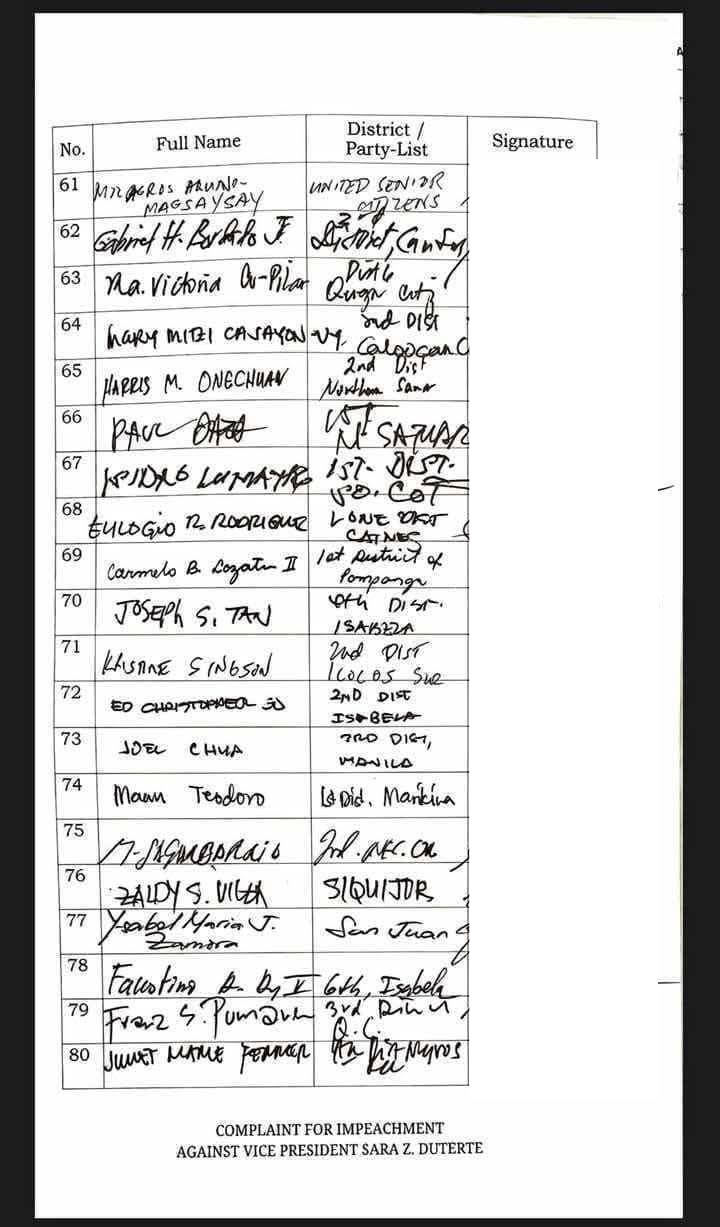 No. Full Name District / Party-List Signature
61 MILAGROS AQUINO- UNITED SENIOR
MAGSAYSAY CITIZENS
62 Gabriel H. Bordado Jr. 3rd
District, CamSur
63 Ma. Victoria Co-Pilar Dist 6
Quezon City
64 MARY MITZI CAJAYON-UY. 2nd DIST
Caloocan C
65 HARRIS M. ONGCHUAN 2nd Dist
Northern Samar
66 PAUL DAZA 1ST
N. SAMAR
67 ISIDRO LUMAYAG 1ST. DIST.
SO. COT
68 EULOGIO R. RODRIGUEZ LONE DIST
CATNES
69 Carmelo B. Lazatin II 1st District of
Pampanga
70 JOSEPH S. TAN 4th DIST.
ISABELA
71 KRISTINE SINGSON 2nd DIST
ILOCOS Sur
72 ED CHRISTOPHER 2ND DIST
ISABELA
73 JOEL CHUA 3RD DIST,
MANILA
74 Maan Teodoro 1st Dist. Marikina
75
76 ZALDY S. VILLA SIQUIJOR
77 Ysabel Maria J. San Juan
Zamora
78 Faustino A. Dy V 6th, Isabela
79 Franz S. Pumaren 3rd
Q.C.
80 JULIET MARIE FERRER 4th Dist Negros
COMPLAINT FOR IMPEACHMENT
AGAINST VICE PRESIDENT SARA Z. DUTERTE